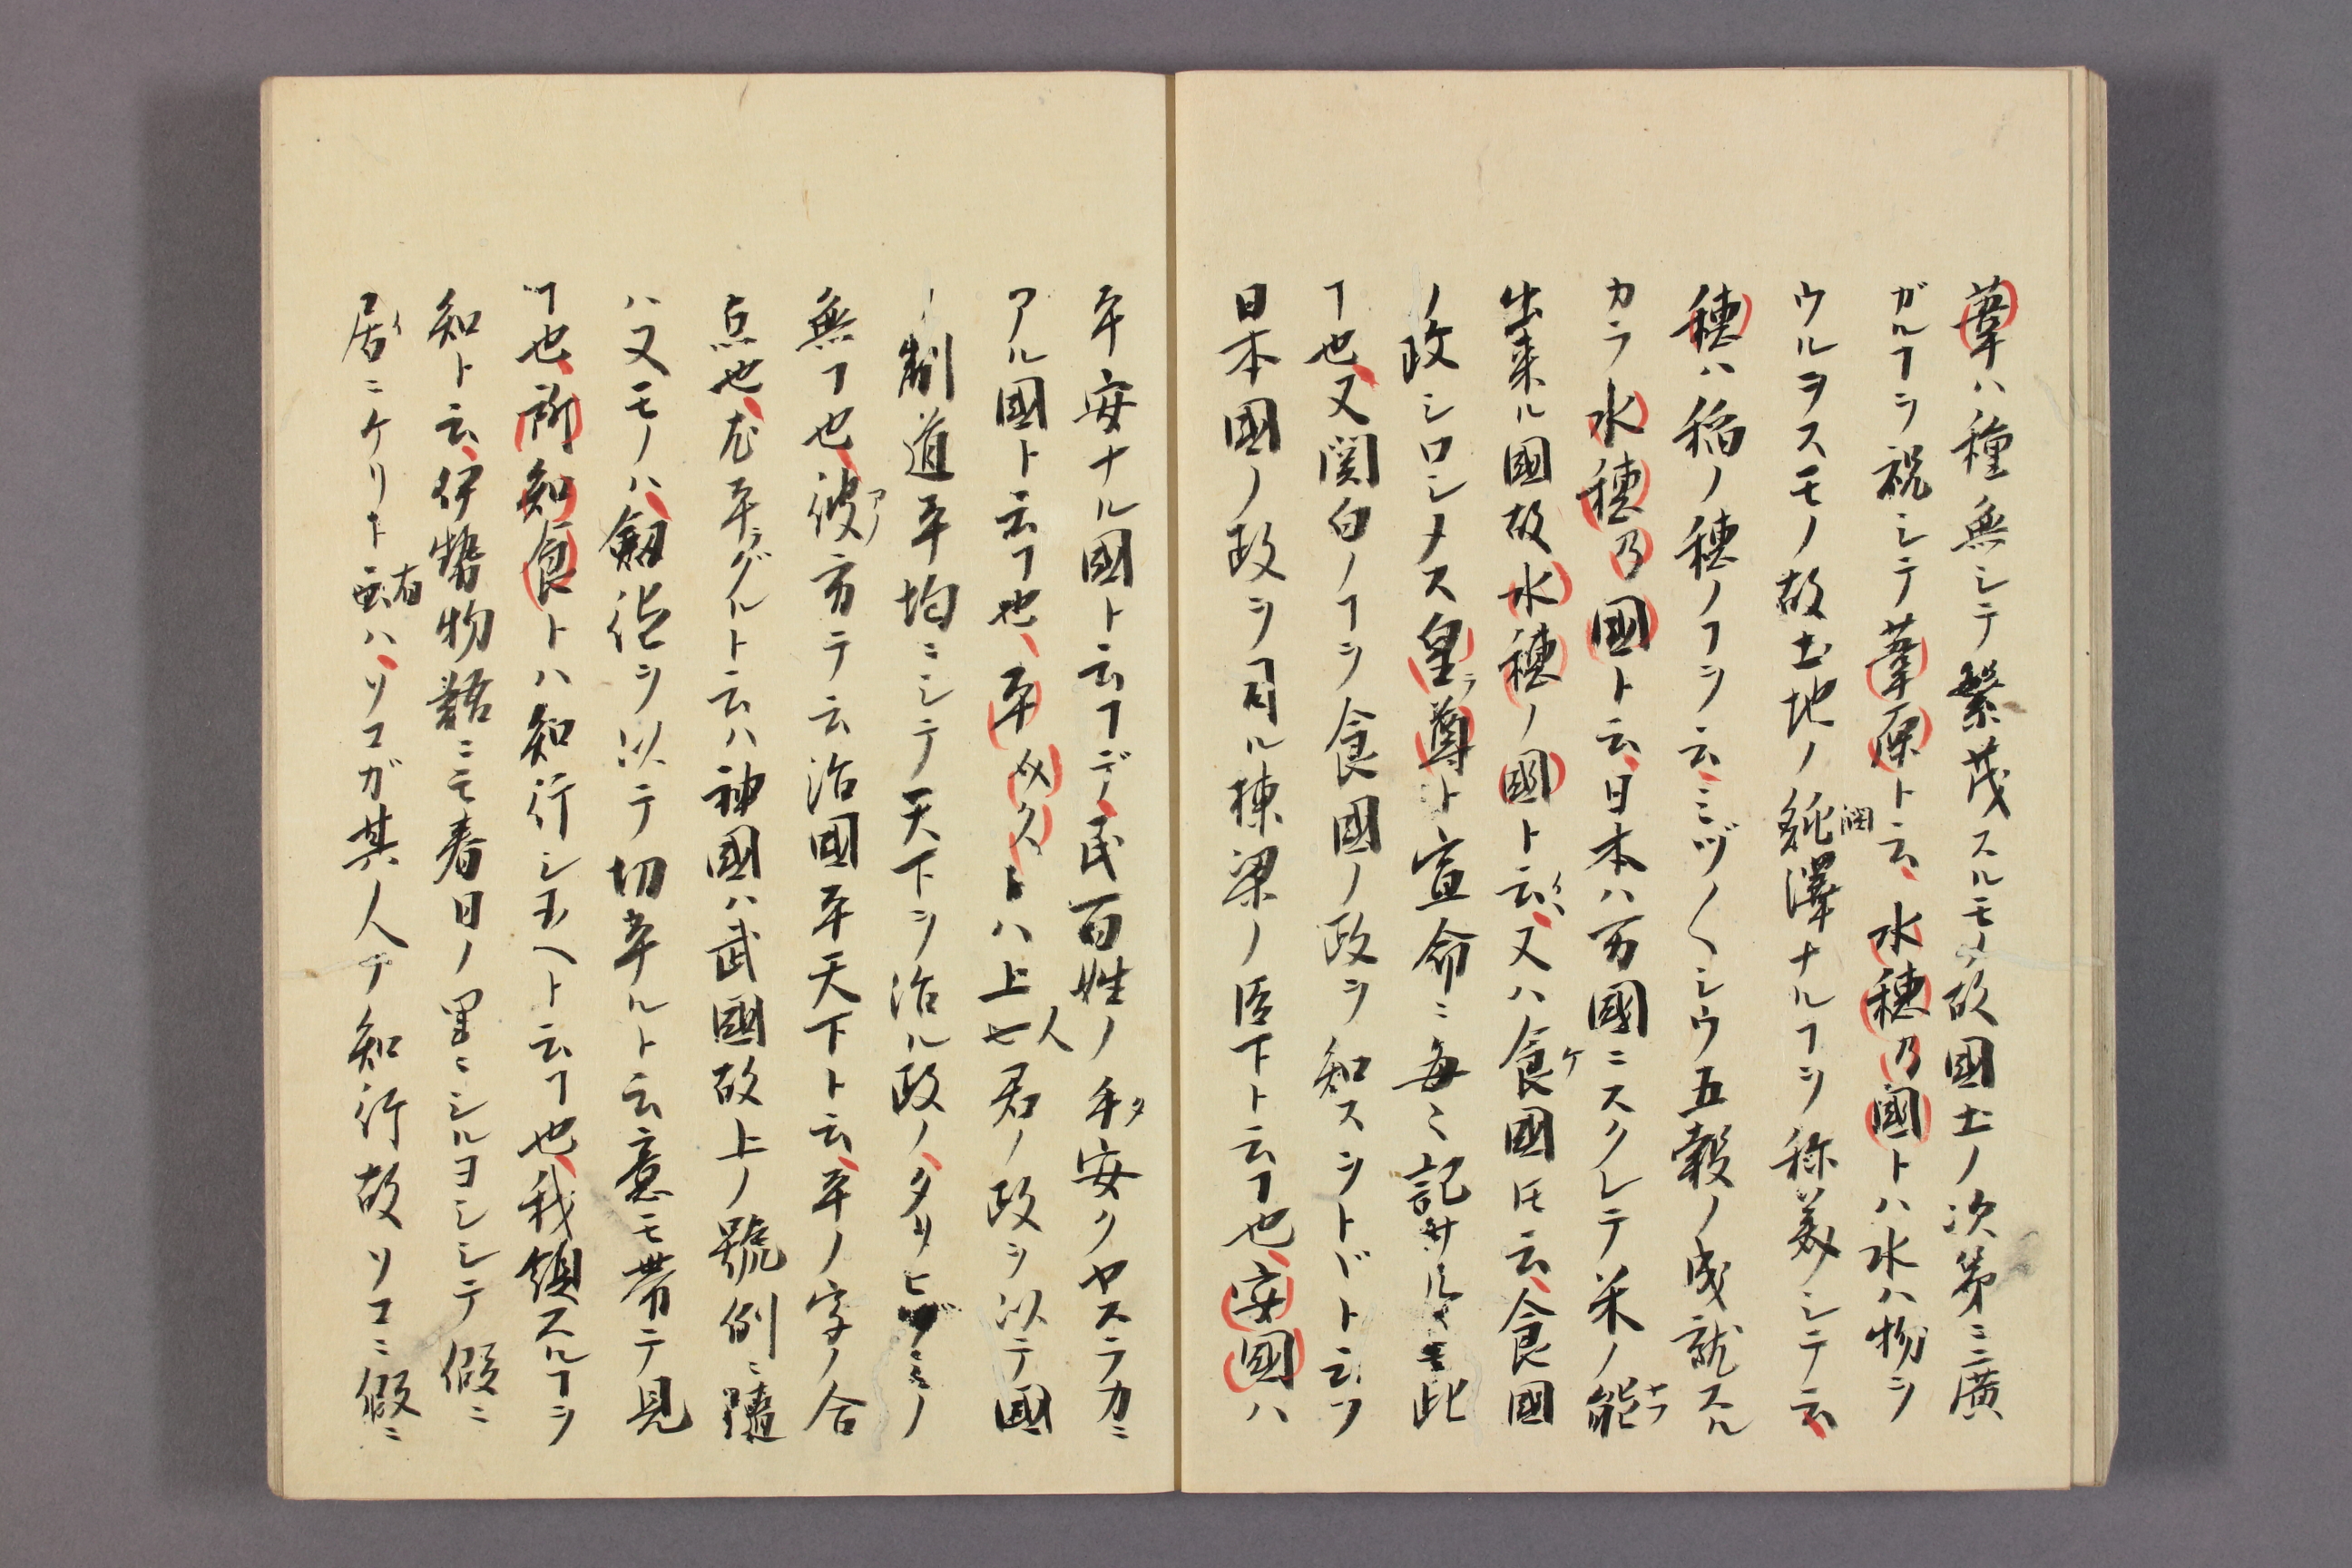 葦ハ種無シテ繁茂スルモノ故國土ノ次第ニ廣
ガルヿヲ祝シテ葦原ト云、水穂乃國トハ水ハ物ヲ
ウルヲスモノ故土地ノ純潤澤ナルヿヲ称美シテ云
穂ハ稲ノ穂ノヿヲ云、ミヅ〱シウ五穀ノ成就スル
カラ水穂乃國ト云、日本ハ万國ニスクレテ米ノ能ナフ
出来ル國故水穂ノ國ト云、又ハ食ケ國トモ云、食國
ノ政シロシメス皇ラ尊ト宣命ニ毎ニ記サル此
ヿ也、又関白ノヿヲ食國ノ政ヲ知スヲトヾト云フ
日本國ノ政ヲ司ル棟梁ノ臣下ト云ヿ也、安國ハ
平安ナル國ト云ヿデ、民百姓ノ手タ安クヤスラカニ
アル國ト云ヿ也、平ケクトハ上一人君ノ政ヲ以テ國
ノ制道平均ニシテ天下ヲ治ル政ノ、タリヒヅミノ
無ヿ也、彼アノ方テ云治國平天下ト云、平ノ字ノ合
点也、尤平ラグルト云ハ神國ハ武國故上ノ號例ニ隨
ハヌモノハ、劔徳ヲ以テ切平ルト云意モ帯テ見
ヿ也、所知食トハ知行シ玉ヘト云ヿ也、我領スルヿヲ
知ト云、伊勢物語ニモ春日ノ里ニシルヨシシテ假ニ
居イニケリト有ハ、ソコガ其人ノ知行故ソコニ假ニ